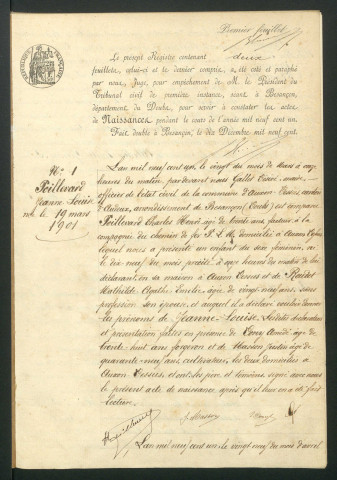 Premier feuillet
RÉPUBLIQUE FRANÇAISE
Le présent Registre contenant deux
feuillets, celui-ci et le dernier compris, a été coté et paraphé
par nous, Juge, pour empêchement de M. le Président du
Tribunal civil de première instance, séant à Besançon,
département du Doubs, pour servir à constater les actes
de Naissances, pendant le cours de l'année mil neuf cent un.
Fait double à Besançon, le dix Décembre mil neuf cent.
N° 1
Poillevard
Jeanne Louise
née le 19 mars
1901
L'an mil neuf cent un, le vingt du mois de Mars à onze
heures du matin, par devant nous Gallot maire
officier de l'état civil de la commune d'Auxon-Dessus, canton
d'Audeux, arrondissement de Besançon (Doubs) est comparu
Poillevard Charles Henri âgé de trente ans, facteur à la
compagnie du chemin de fer P. L. M. domicilié à Auxon Dessus
lequel nous a présenté un enfant du sexe féminin, né
le dix neuf du mois présent à onze heures du matin de lui
déclarant, en sa maison à Auxon Dessus et de
Mathilde Agathe Emélie, âgée de vingt neuf ans, sans
profession son épouse, et auquel il a déclaré vouloir donner
les prénoms de Jeanne-Louise. Lesdites déclaration
et présentation faites en présence de Cuny âgé de
trente huit ans forgeron et de Masson Justin âgé de
quarante neuf ans cultivateur, les deux domiciliés à
Auxon Dessus, et ont les père et témoins signé avec nous
le présent acte de naissance, après qu'il leur en a été fait
lecture.
J. Masson
L'an mil neuf cent un le vingt neuf du mois d'avril